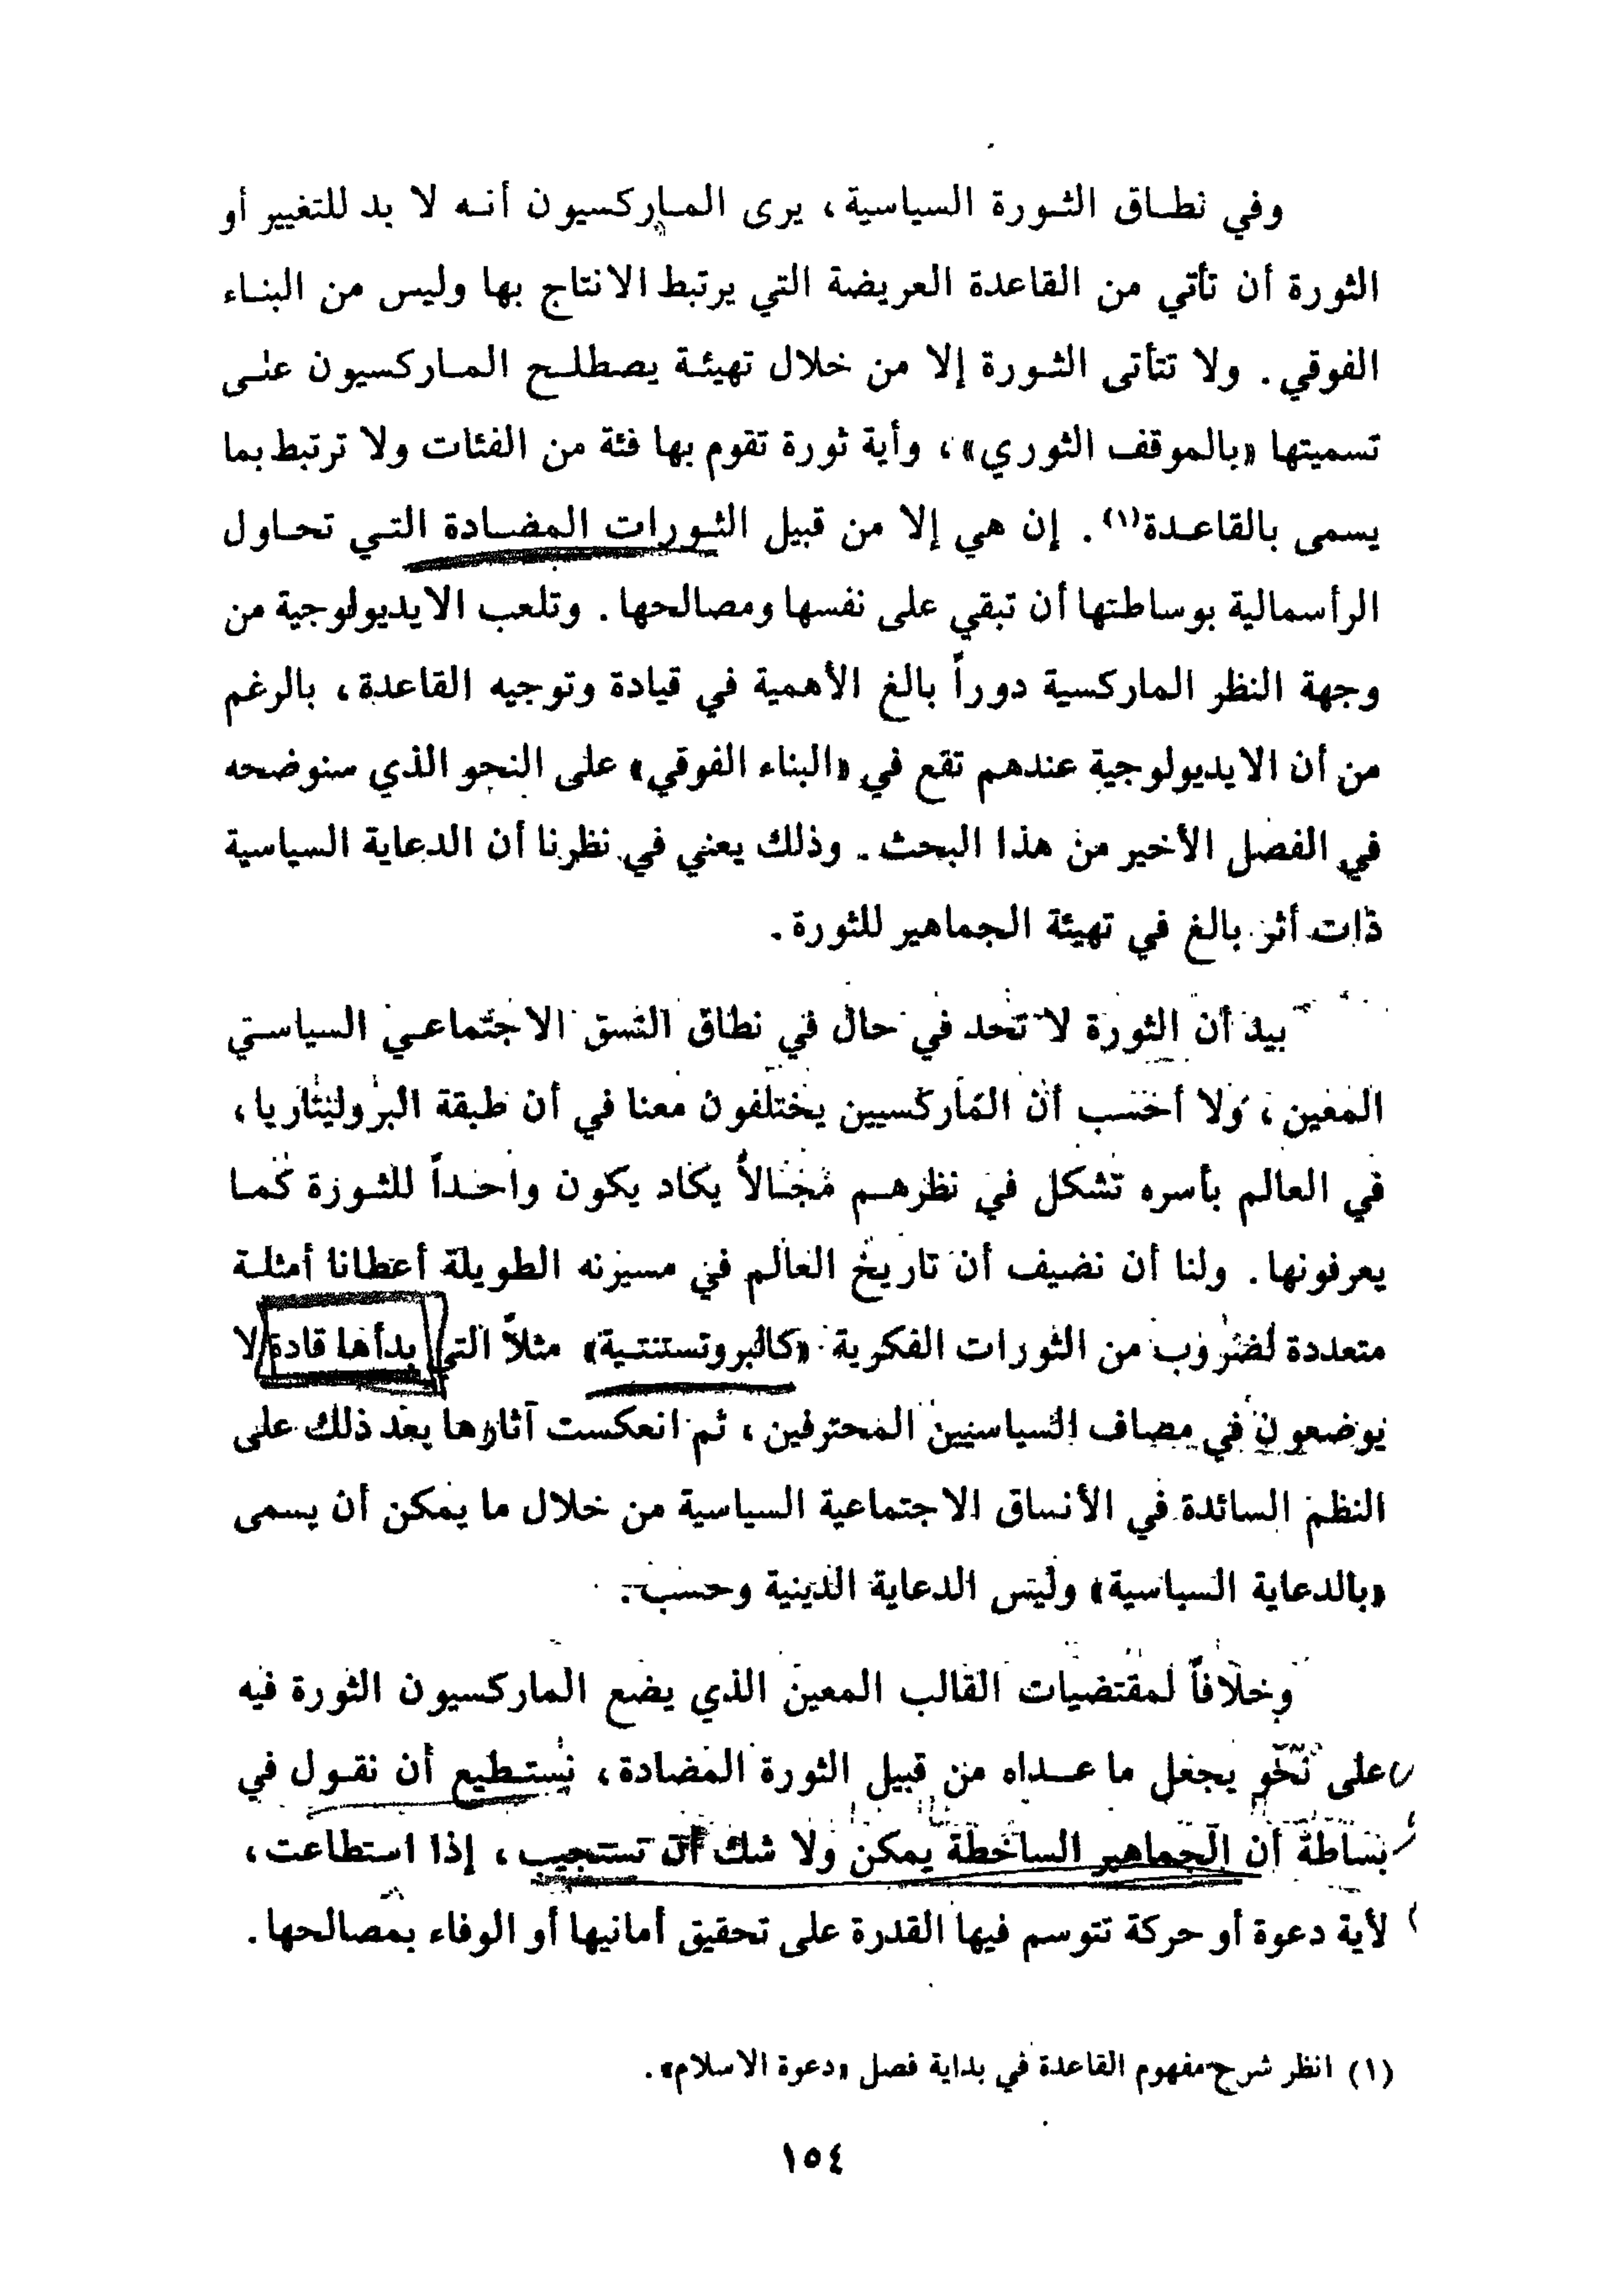 وفي نطاق الثورة السياسية، يرى الماركسيون أنه لا بد للتغيير أو
الثورة أن تأتي من القاعدة العريضة التي يرتبط الانتاج بها وليس من البناء
الفوقي. ولا تتأتى الثورة إلا من خلال تهيئة يصطلح الماركسيون على
تسميتها «بالموقف الثوري»، وأية ثورة تقوم بها فئة من الفئات ولا ترتبط بما
يسمى بالقاعدة(١). إن هي إلا من قبيل الثورات المضادة التي تحاول
الرأسمالية بوساطتها أن تبقي على نفسها ومصالحها. وتلعب الايديولوجية من
وجهة النظر الماركسية دوراً بالغ الأهمية في قيادة وتوجيه القاعدة، بالرغم
من أن الايديولوجية عندهم تقع في «البناء الفوقي» على النحو الذي سنوضحه
في الفصل الأخير من هذا البحث. وذلك يعني في نظرنا أن الدعاية السياسية
ذات أثر بالغ في تهيئة الجماهير للثورة.
بيد أن الثورة لا تحد في حال في نطاق النسق الاجتماعي السياسي
المعين، ولا أحسب أن الماركسيين يختلفون معنا في أن طبقة البروليتاريا،
في العالم بأسره تشكل في نظرهم مجالاً يكاد يكون واحداً للثورة كما
يعرفونها. ولنا أن نضيف أن تاريخ العالم في مسيرته الطويلة أعطانا أمثلة
متعددة لضروب من الثورات الفكرية «كالبروتستنتية» مثلاً التي بدأها قادة لا
يوضعون في مصاف السياسيين المحترفين، ثم انعكست آثارها بعد ذلك على
النظم السائدة في الأنساق الاجتماعية السياسية من خلال ما يمكن أن يسمى
«بالدعاية السياسية» وليس الدعاية الدينية وحسب.
وخلافاً لمقتضيات القالب المعين الذي يضع الماركسيون الثورة فيه
على نحو يجعل ما عداه من قبيل الثورة المضادة، نستطيع أن نقول في
بساطة أن الجماهير الساخطة يمكن ولا شك أن تستجيب، إذا استطاعت،
لأية دعوة أو حركة تتوسم فيها القدرة على تحقيق أمانيها أو الوفاء بمصالحها.
(١) انظر شرح مفهوم القاعدة في بداية فصل «دعوة الاسلام».
١٥٤